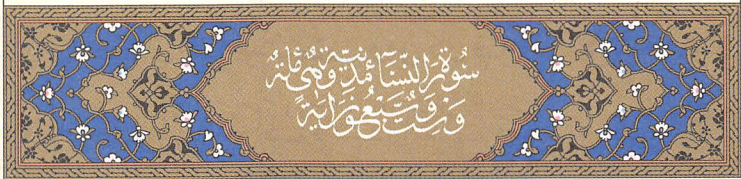 سُورَةُ النِّسَآءِ مَدَنِيَّةٌ وَهِيَ مِائَةٌ
وَسِتٌّ وَسَبْعُونَ اٰيَةً